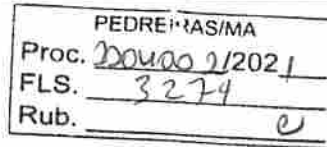 PEDREIRAS/MA
Proc. 2021/202 1
FLS. 3274
Rub.